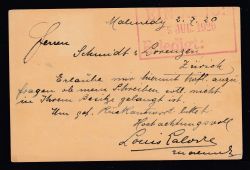 Malmedy 2. 7. 20
Herren
Schmidt & Lorenzen
Zürich
Erlaube mir hiermit höfl. anzu
fragen ob mein Schreiben vom
in Ihrem Besitze gelangt ist.
Um gef. Rückantwort bittet
Hochachtungsvoll
Louis
Malmedy